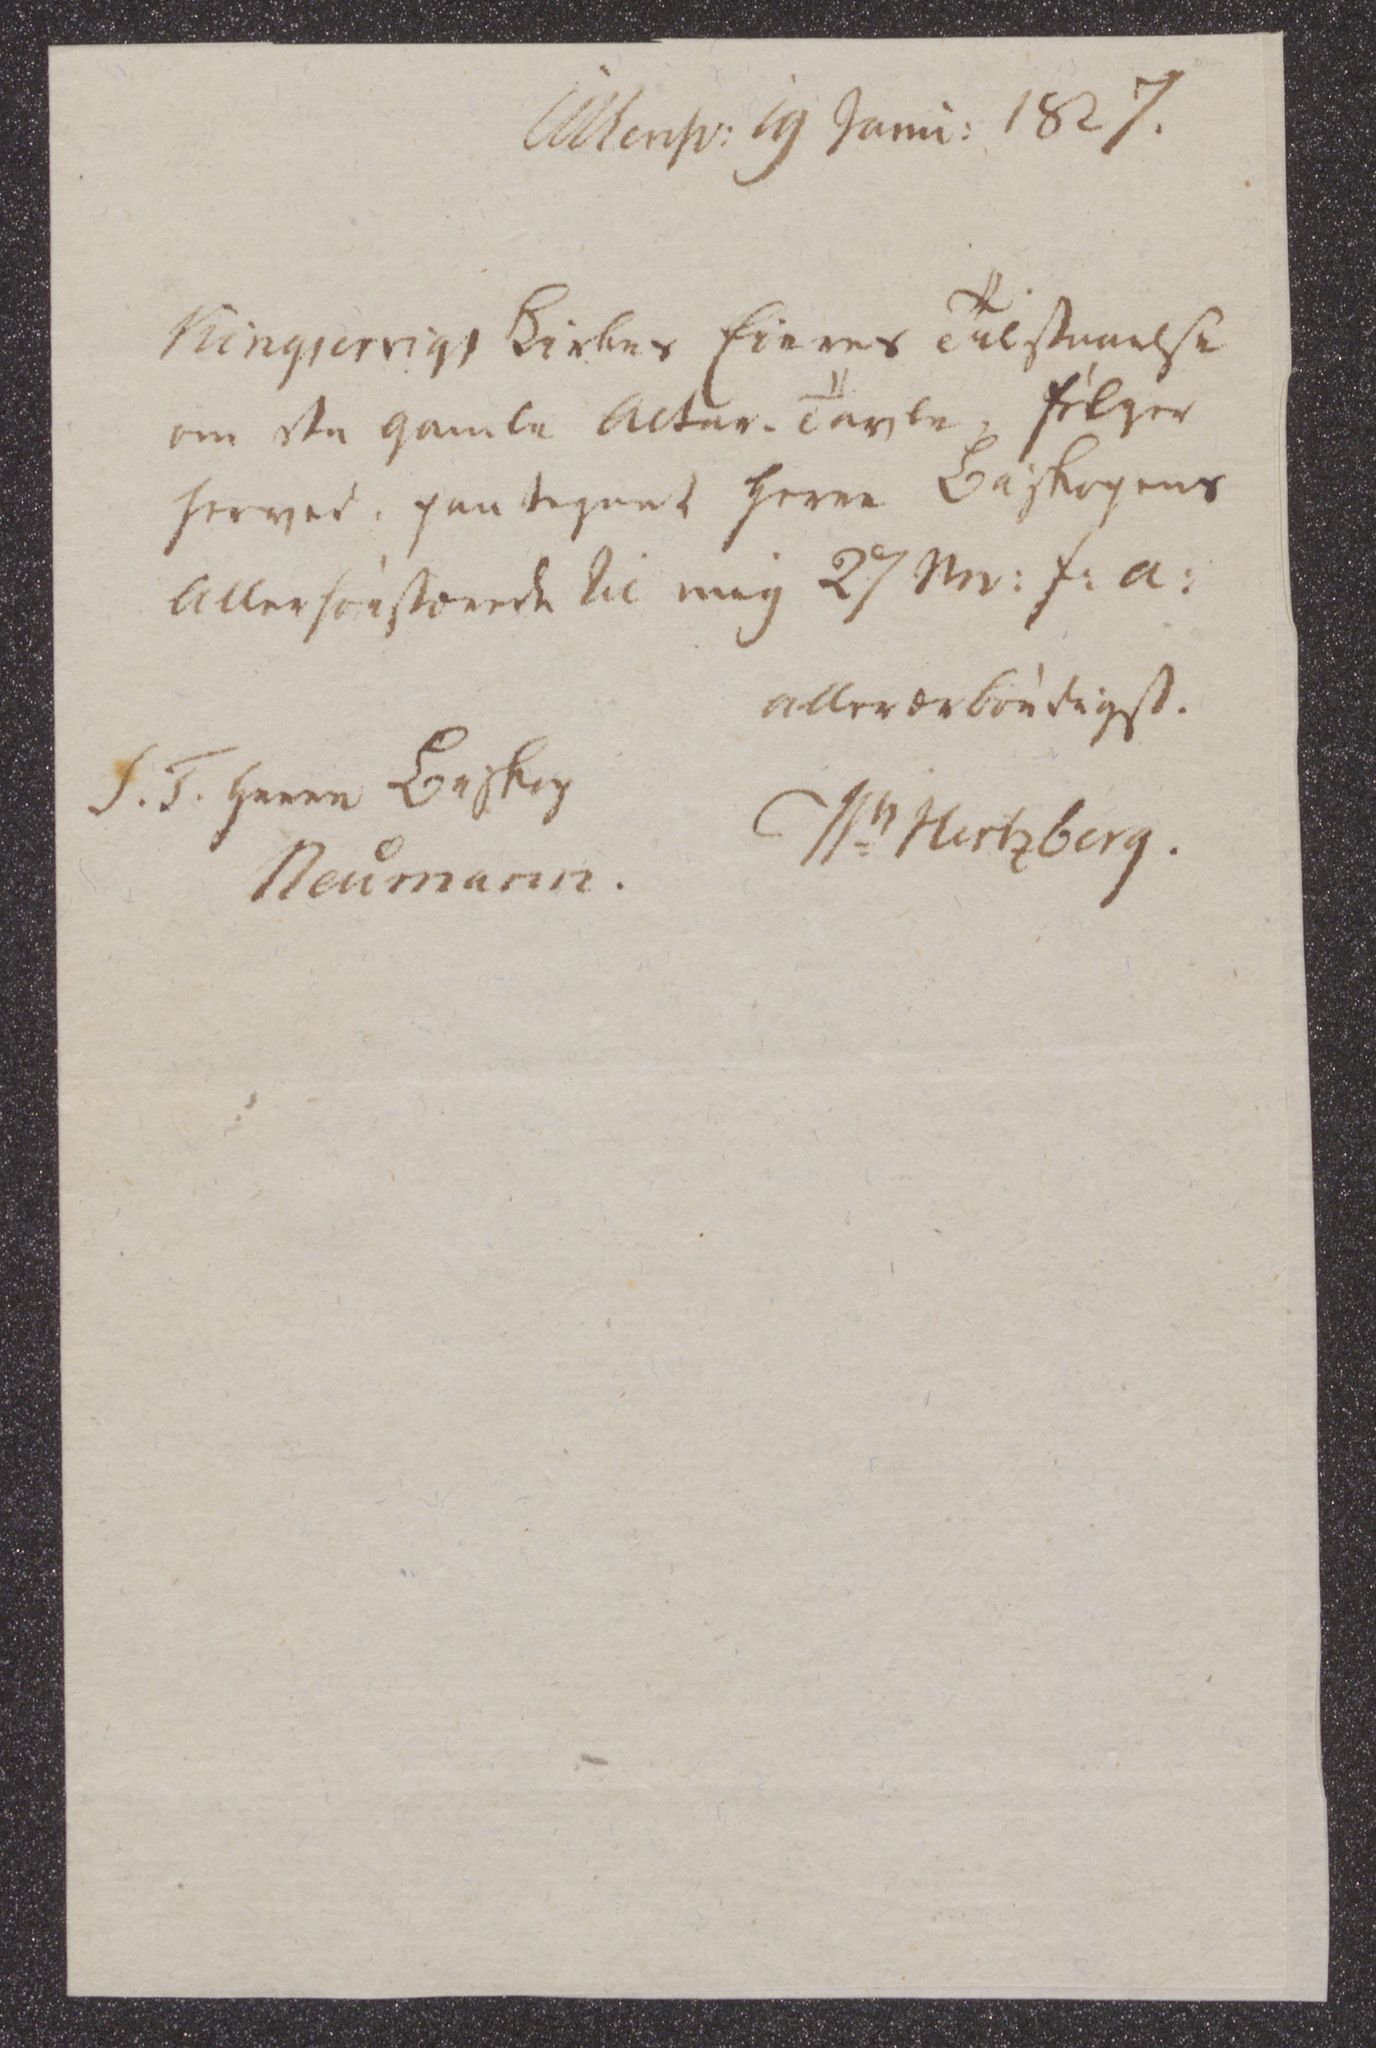 Ullensv: 19 Janu: 1827.
Kingservigs Kirkes Eieres Tilstaaelse
om den gamle Altar-Tavle, følger
herved, paategnet Herr Biskopens
Allerhøistærede til mig 27 Nov: f: a:
allerærbødigst.
S. T. Herr Biskop
Neumann.
Hertzberg.